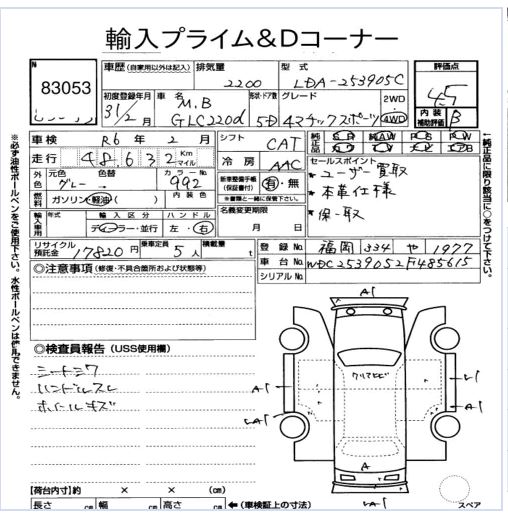 輸入プライム&Dコーナー
83053
車歴 (自家用以外は記入)
排気量
2200
型式
LDA-253905C
評価点
4.5
内装補助評価
B
初度登録年月
31/2月
車名
M.B
GLC220d
形状・ドア数
5D
グレード
4マチックスポーツ
2WD
4WD
車検 R6年 2月
シフト
CAT
純正品
走行 48,632 Km マイル
冷房
AAC
セールスポイント
*ユーザー買取
*本革仕様
*保-取
外色
元色
グレー
色替
カラーNo
992
燃料
ガソリン・軽油( )
内装色
新車整備手帳(保証書付)
有・無
※書類と一緒に保管下さい。
輸入車用
年式
輸入区分
ディーラー・並行
ハンドル
左・右
名義変更期限
月 日
リサイクル預託金
17820円
乗車定員
5人
積載量
t
登録No
福岡 334 や 1977
車台No
WDC2539052F485615
シリアルNo
◎注意事項 (修復・不具合箇所および状態等)
◎検査員報告 (USS使用欄)
シートシワ
ハンドルスレ
ホイールキズ
A1
A1
A1
A
スペア
【荷台内寸】約 × × (cm)
長さ cm
幅 cm
高さ cm
←(車検証上の寸法)
※必ず油性ボールペンをご使用下さい。水性ボールペンは使用できません。
←純正品に限り該当に○をつけて下さい。